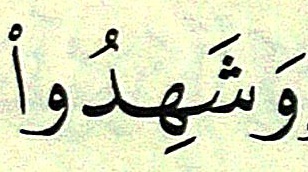 وَشَهِدُوا۟